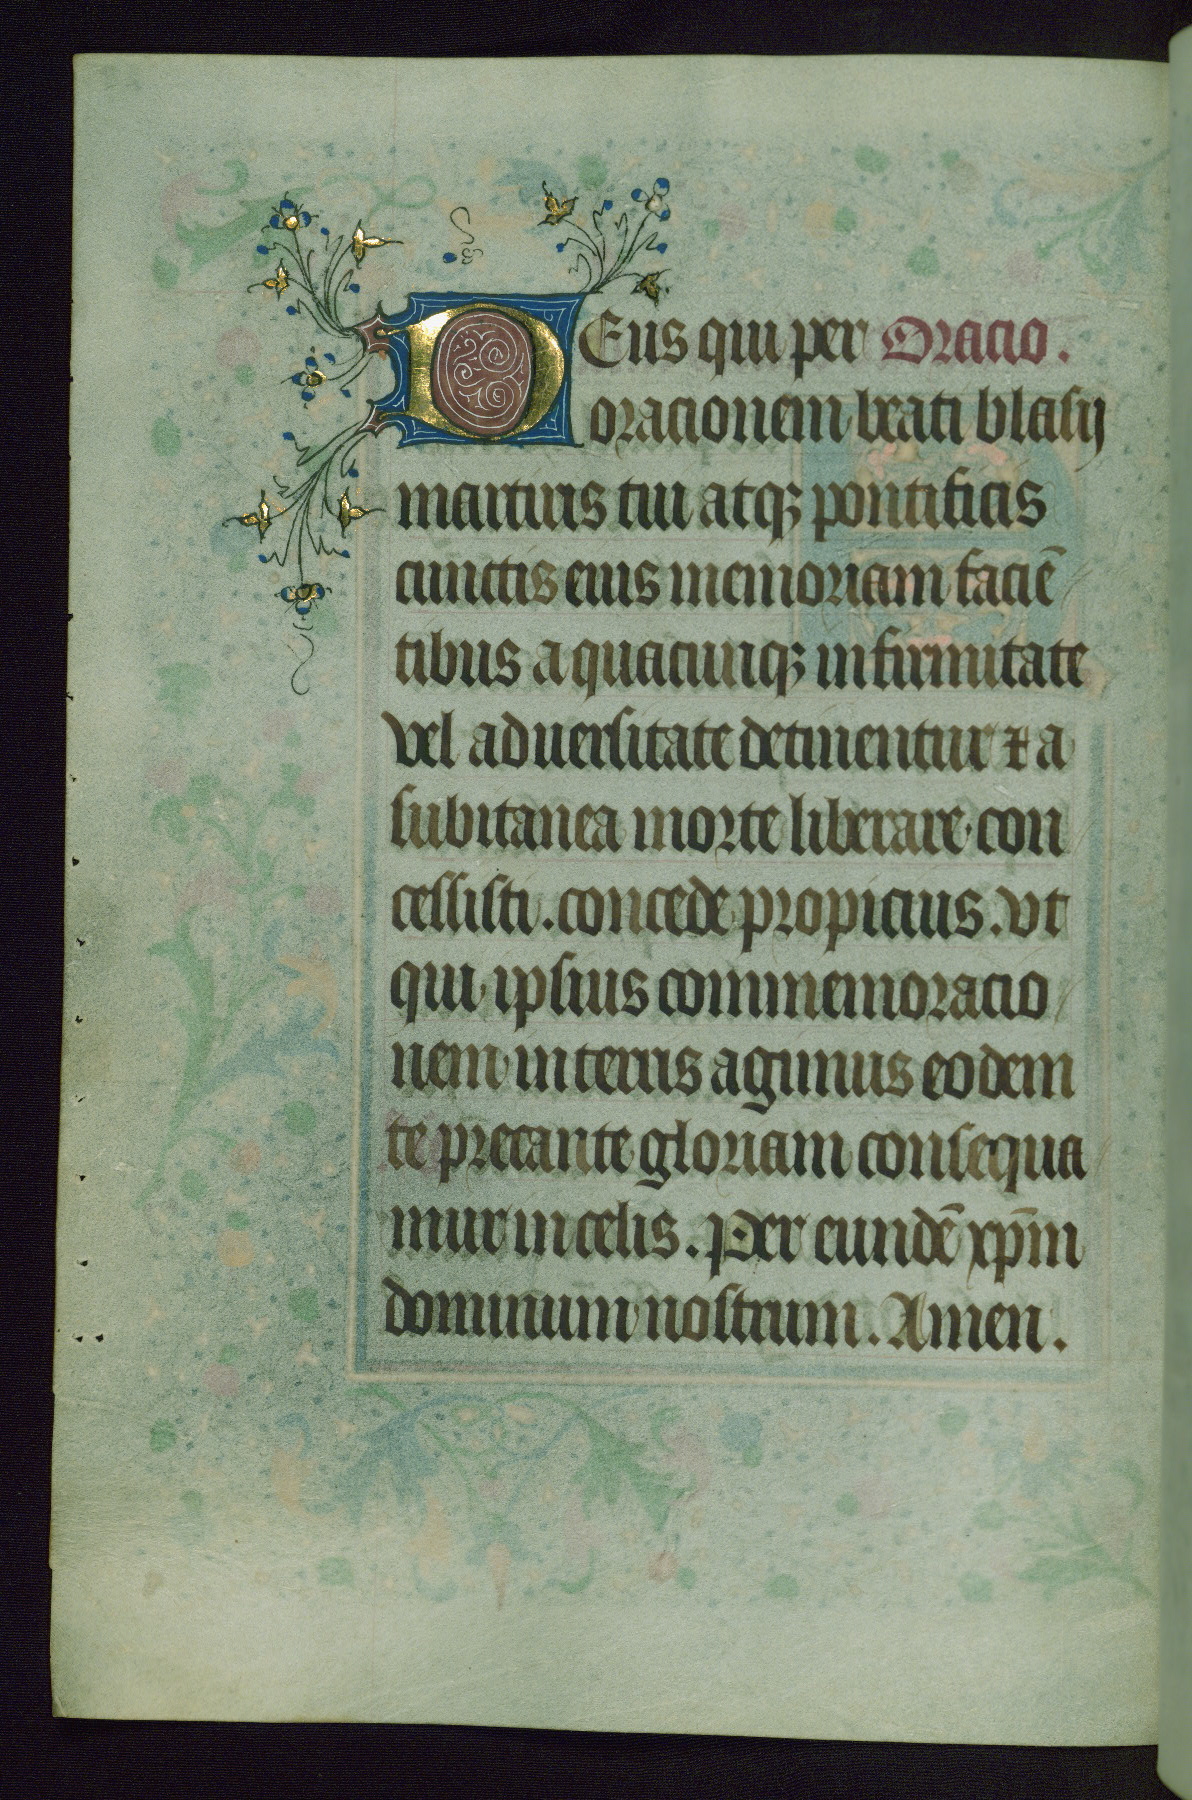 DEus qui per Oracio.
oracionem beati blasij
martiris tui atqꝫ pontificis
cunctis eius memoriam faciē
tibus a quacunqꝫ infirmitate
vel aduersitate detinentur ⁊ a
subitanea morte liberare con
cessisti. concede propicius. vt
qui ipsius commemoracio
nem in terris agimus eodem
te precante gloriam consequa
mur in celis. Per eundē xp̄m
dominum nostrum. Amen.